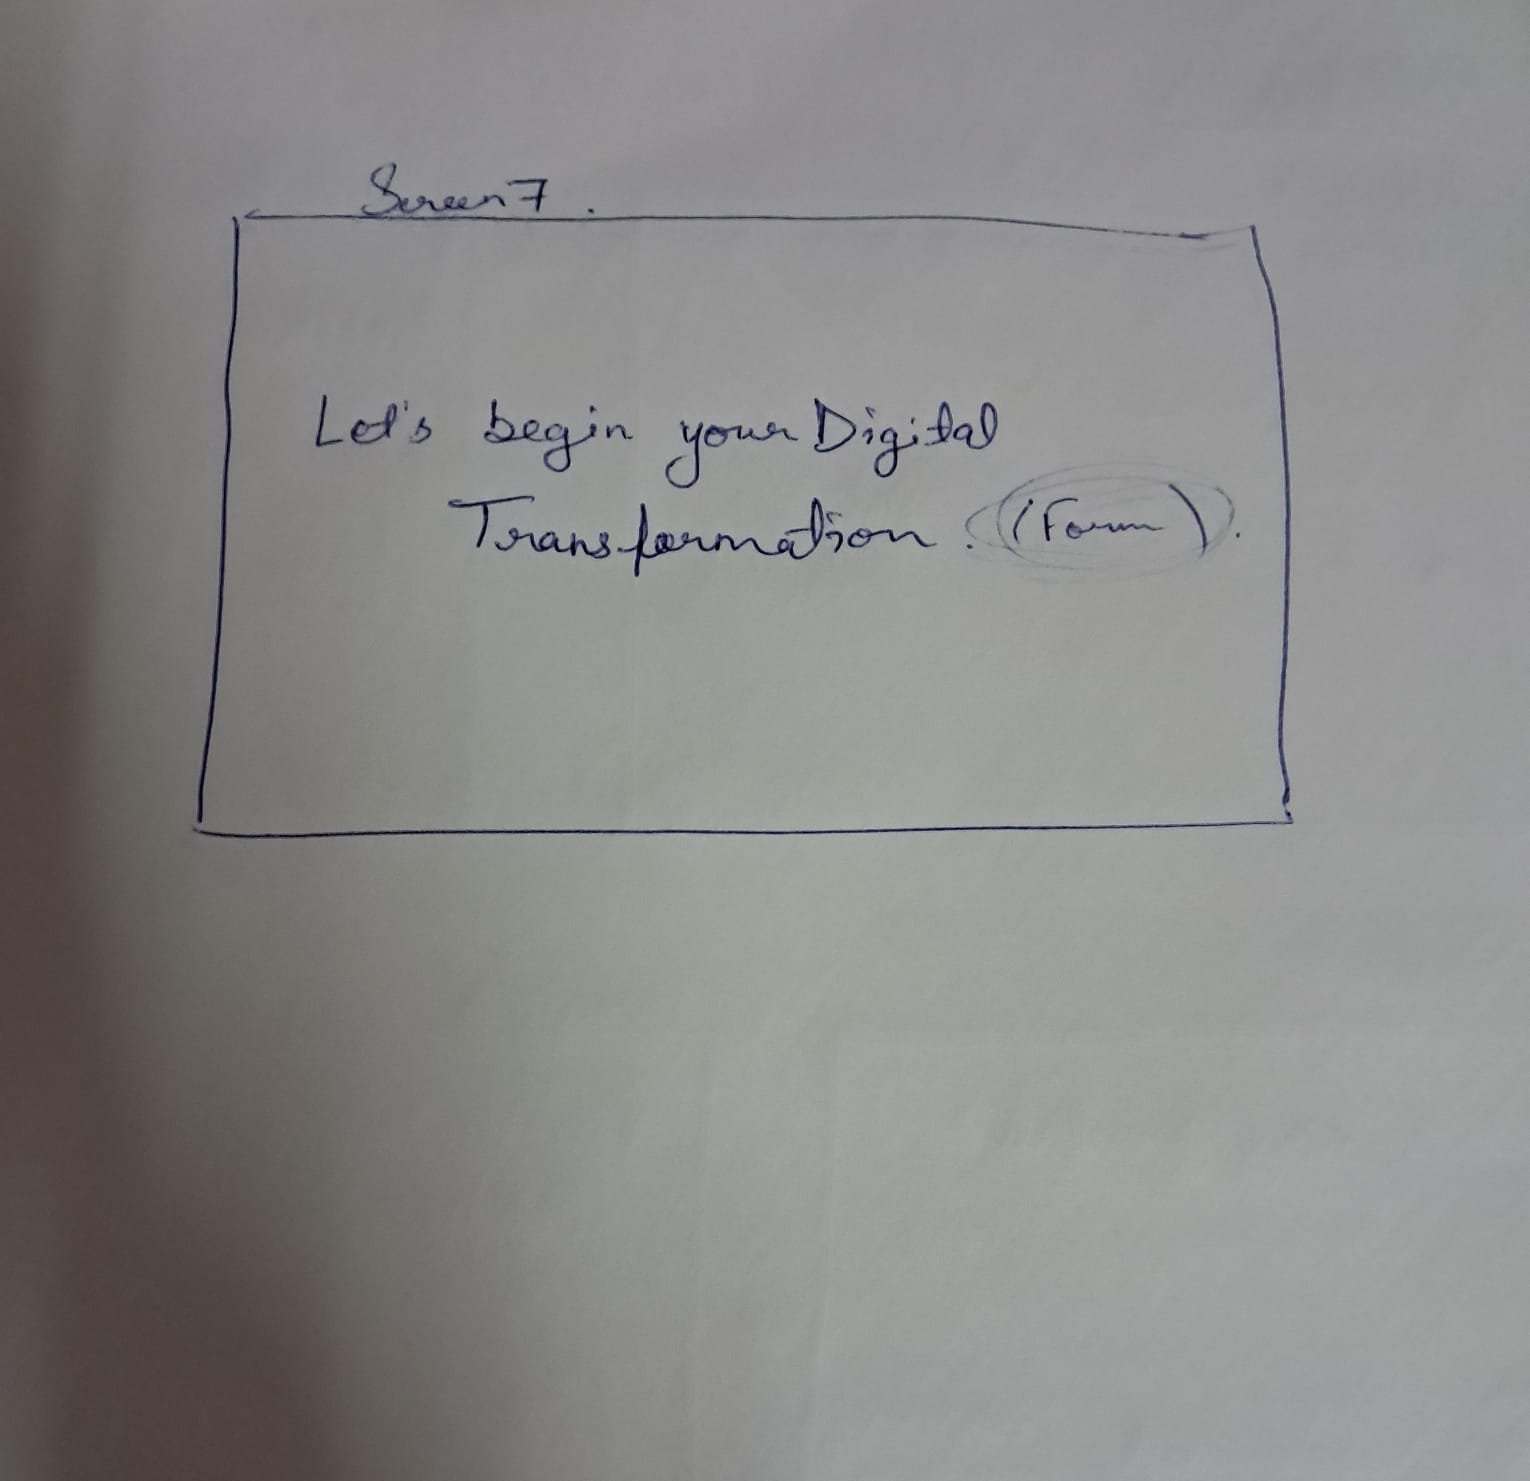 Screen 7.
Let's begin your Digital
Transformation. (Form).